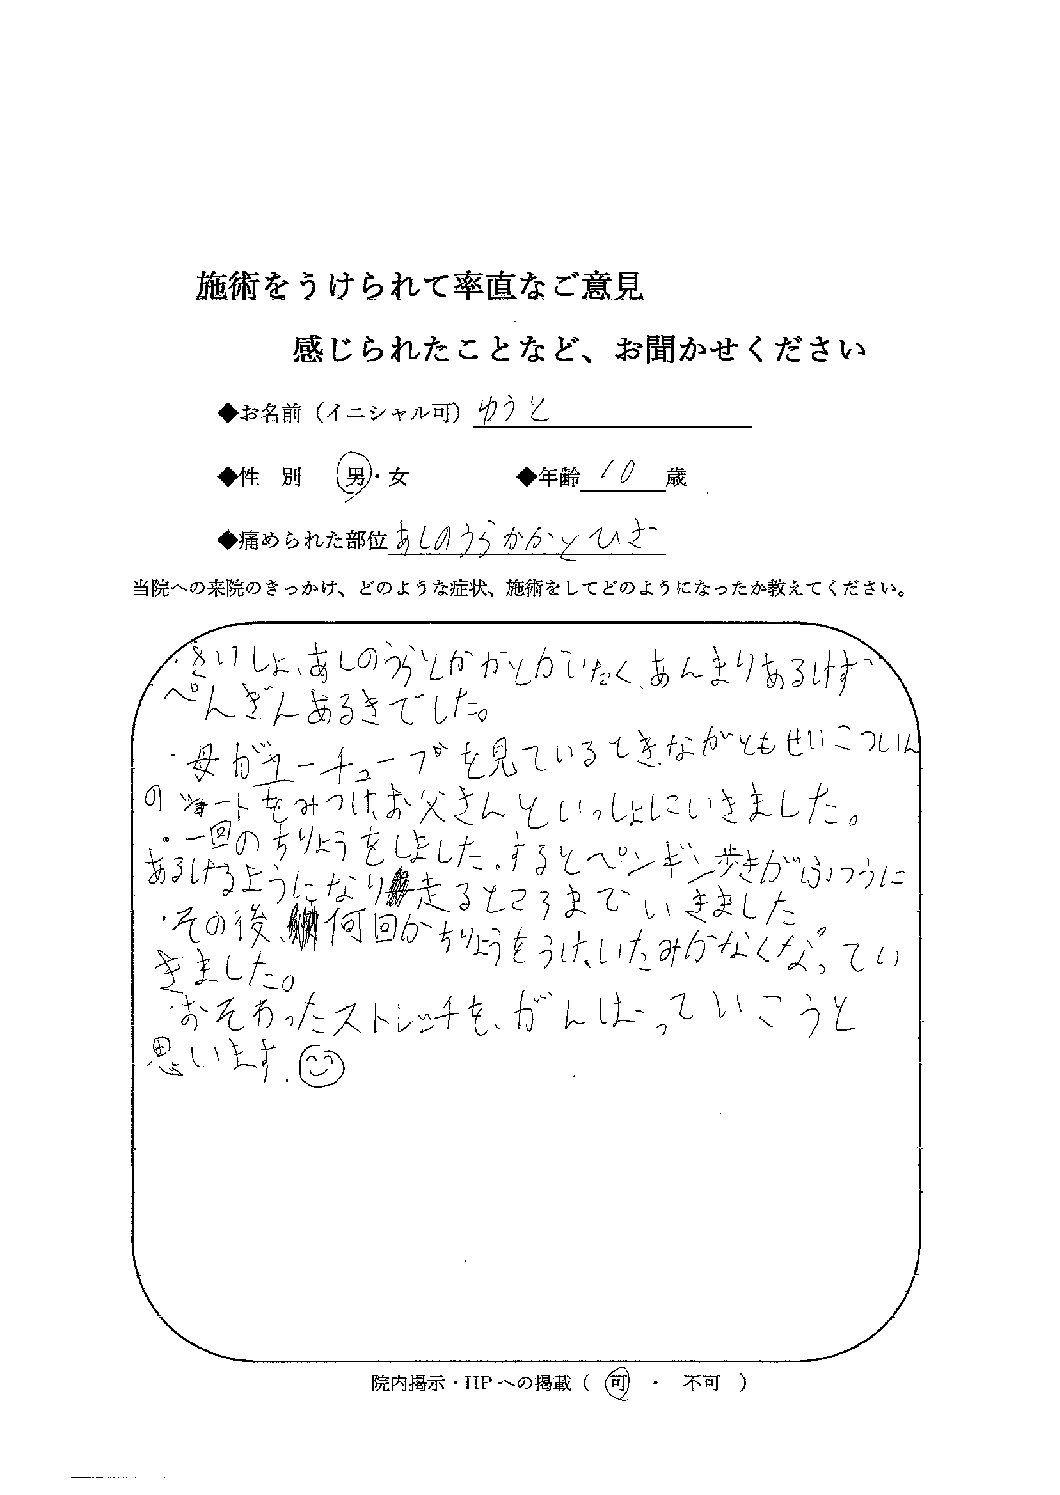 施術をうけられて率直なご意見
感じられたことなど、お聞かせください
◆お名前（イニシャル可）ゆうと
◆性 別 男・女 ◆年齢 10 歳
◆痛められた部位 あしのうらかかとひざ
当院への来院のきっかけ、どのような症状、施術をしてどのようになったか教えてください。
・さいしょ、あしのうらとかかとがいたく、あんまりあるけず
ぺんぎんあるきでした。
・母がユーチューブを見ているとき、ながともせいこついん
のショートをみつけ、お父さんといっしょにいきました。
・一回のちりょうをしました。するとペンギン歩きがふつうに
あるけるようになり走るところまでいきました。
・その後、何回かちりょうをうけ、いたみがなくなってい
きました。
・おそわったストレッチを、がんばっていこうと
思います。
院内掲示・HPへの掲載（ 可 ・ 不可 ）